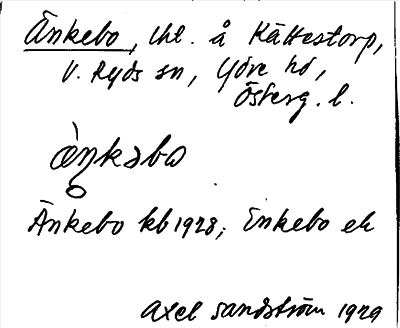 Änkebo, lhl. å Kättestorp,
V. Ryds sn, Ydre hd,
Österg. l.
Änkebo kb 1928; Enkebo ek
Axel Sandström 1929